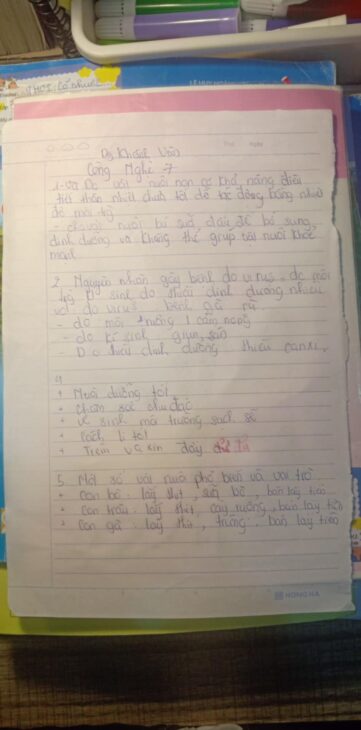 Thứ Ngày
Khánh Vân
Công Nghệ 7
1. vật nuôi non có khả năng điều
tiết thân nhiệt chưa tốt dễ tác động bằng nhiệt
độ môi
- cho vật nuôi bú sữa đầu để bổ sung
dinh dưỡng và kháng thể giúp vật nuôi khỏe
mạnh
2. Nguyên nhân gây bệnh do virus, do môi
kí sinh do thiếu dinh dưỡng
do virus bệnh gà rù
- do môi trường cảm nóng
- do kí sinh giun, sán
- Do thiếu dinh dưỡng thiếu canxi.
4
+ Nuôi dưỡng tốt
+ chăm sóc chu đáo
+ vệ sinh môi trường sạch sẽ
+ cách li tốt
+ Tiêm vacxin đầy đủ
5. Một số vật nuôi phổ biến và vai trò
+ Con bò: lấy thịt, sữa bò, bán lấy tiền
+ Con trâu: lấy thịt, cày ruộng, bán lấy tiền
+ Con gà: lấy thịt, trứng, bán lấy tiền
HONG HA